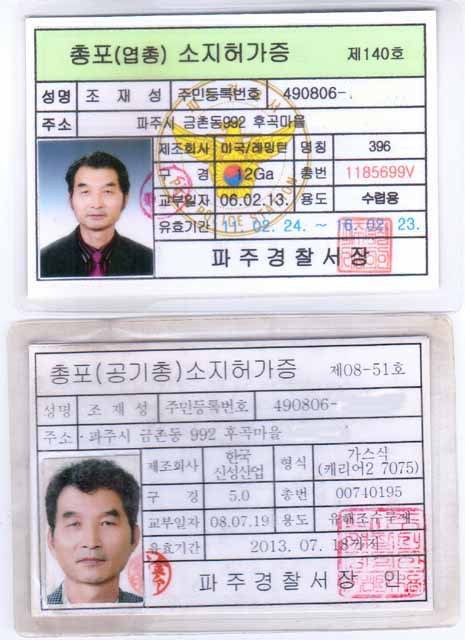 총포(엽총) 소지허가증 제140호
성명 조재성 주민등록번호 490806-
주소 파주시 금촌동992 후곡마을
제조회사 미국/레밍턴 명칭 396
구경 12Ga 총번 1185699V
교부일자 06.02.13. 용도 수렵용
유효기간 11. 02. 24. ~ 16. 02. 23.
파주경찰서장
총포(공기총)소지허가증 제08-51호
성명 조재성 주민등록번호 490806-
주소·파주시 금촌동 992 후곡마을
제조회사 한국 신성산업 형식 가스식 (캐리어2 7075)
구경 5.0 총번 00740195
교부일자 08.07.19 용도 유해조수구제
유효기간 2013. 07. 18까지
파주경찰서장 인